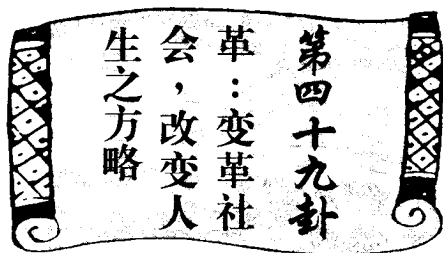 第四十九卦
革：变革社
会，改变人
生之方略